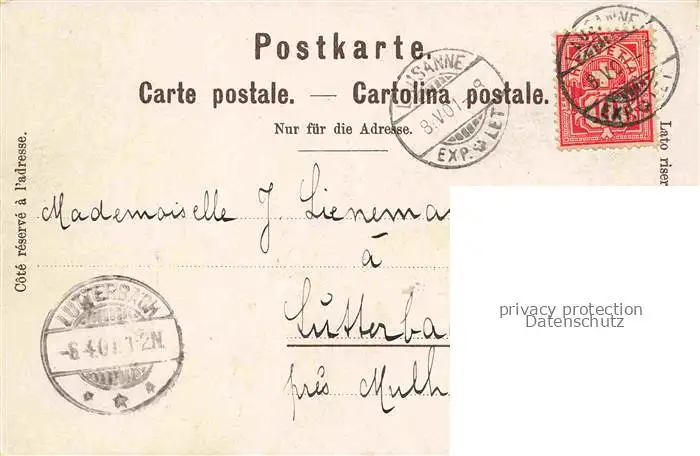 Postkarte.
Carte postale. — Cartolina postale.
Nur für die Adresse.
Côté réservé à l'adresse.
Lato riser
LAUSANNE
8.V.01.-8
EXP. LET.
Mademoiselle J. Lienema
à
Lutterba
près Mulh
LUTTERBACH
-8.4.01.1-2N.
privacy protection
Datenschutz